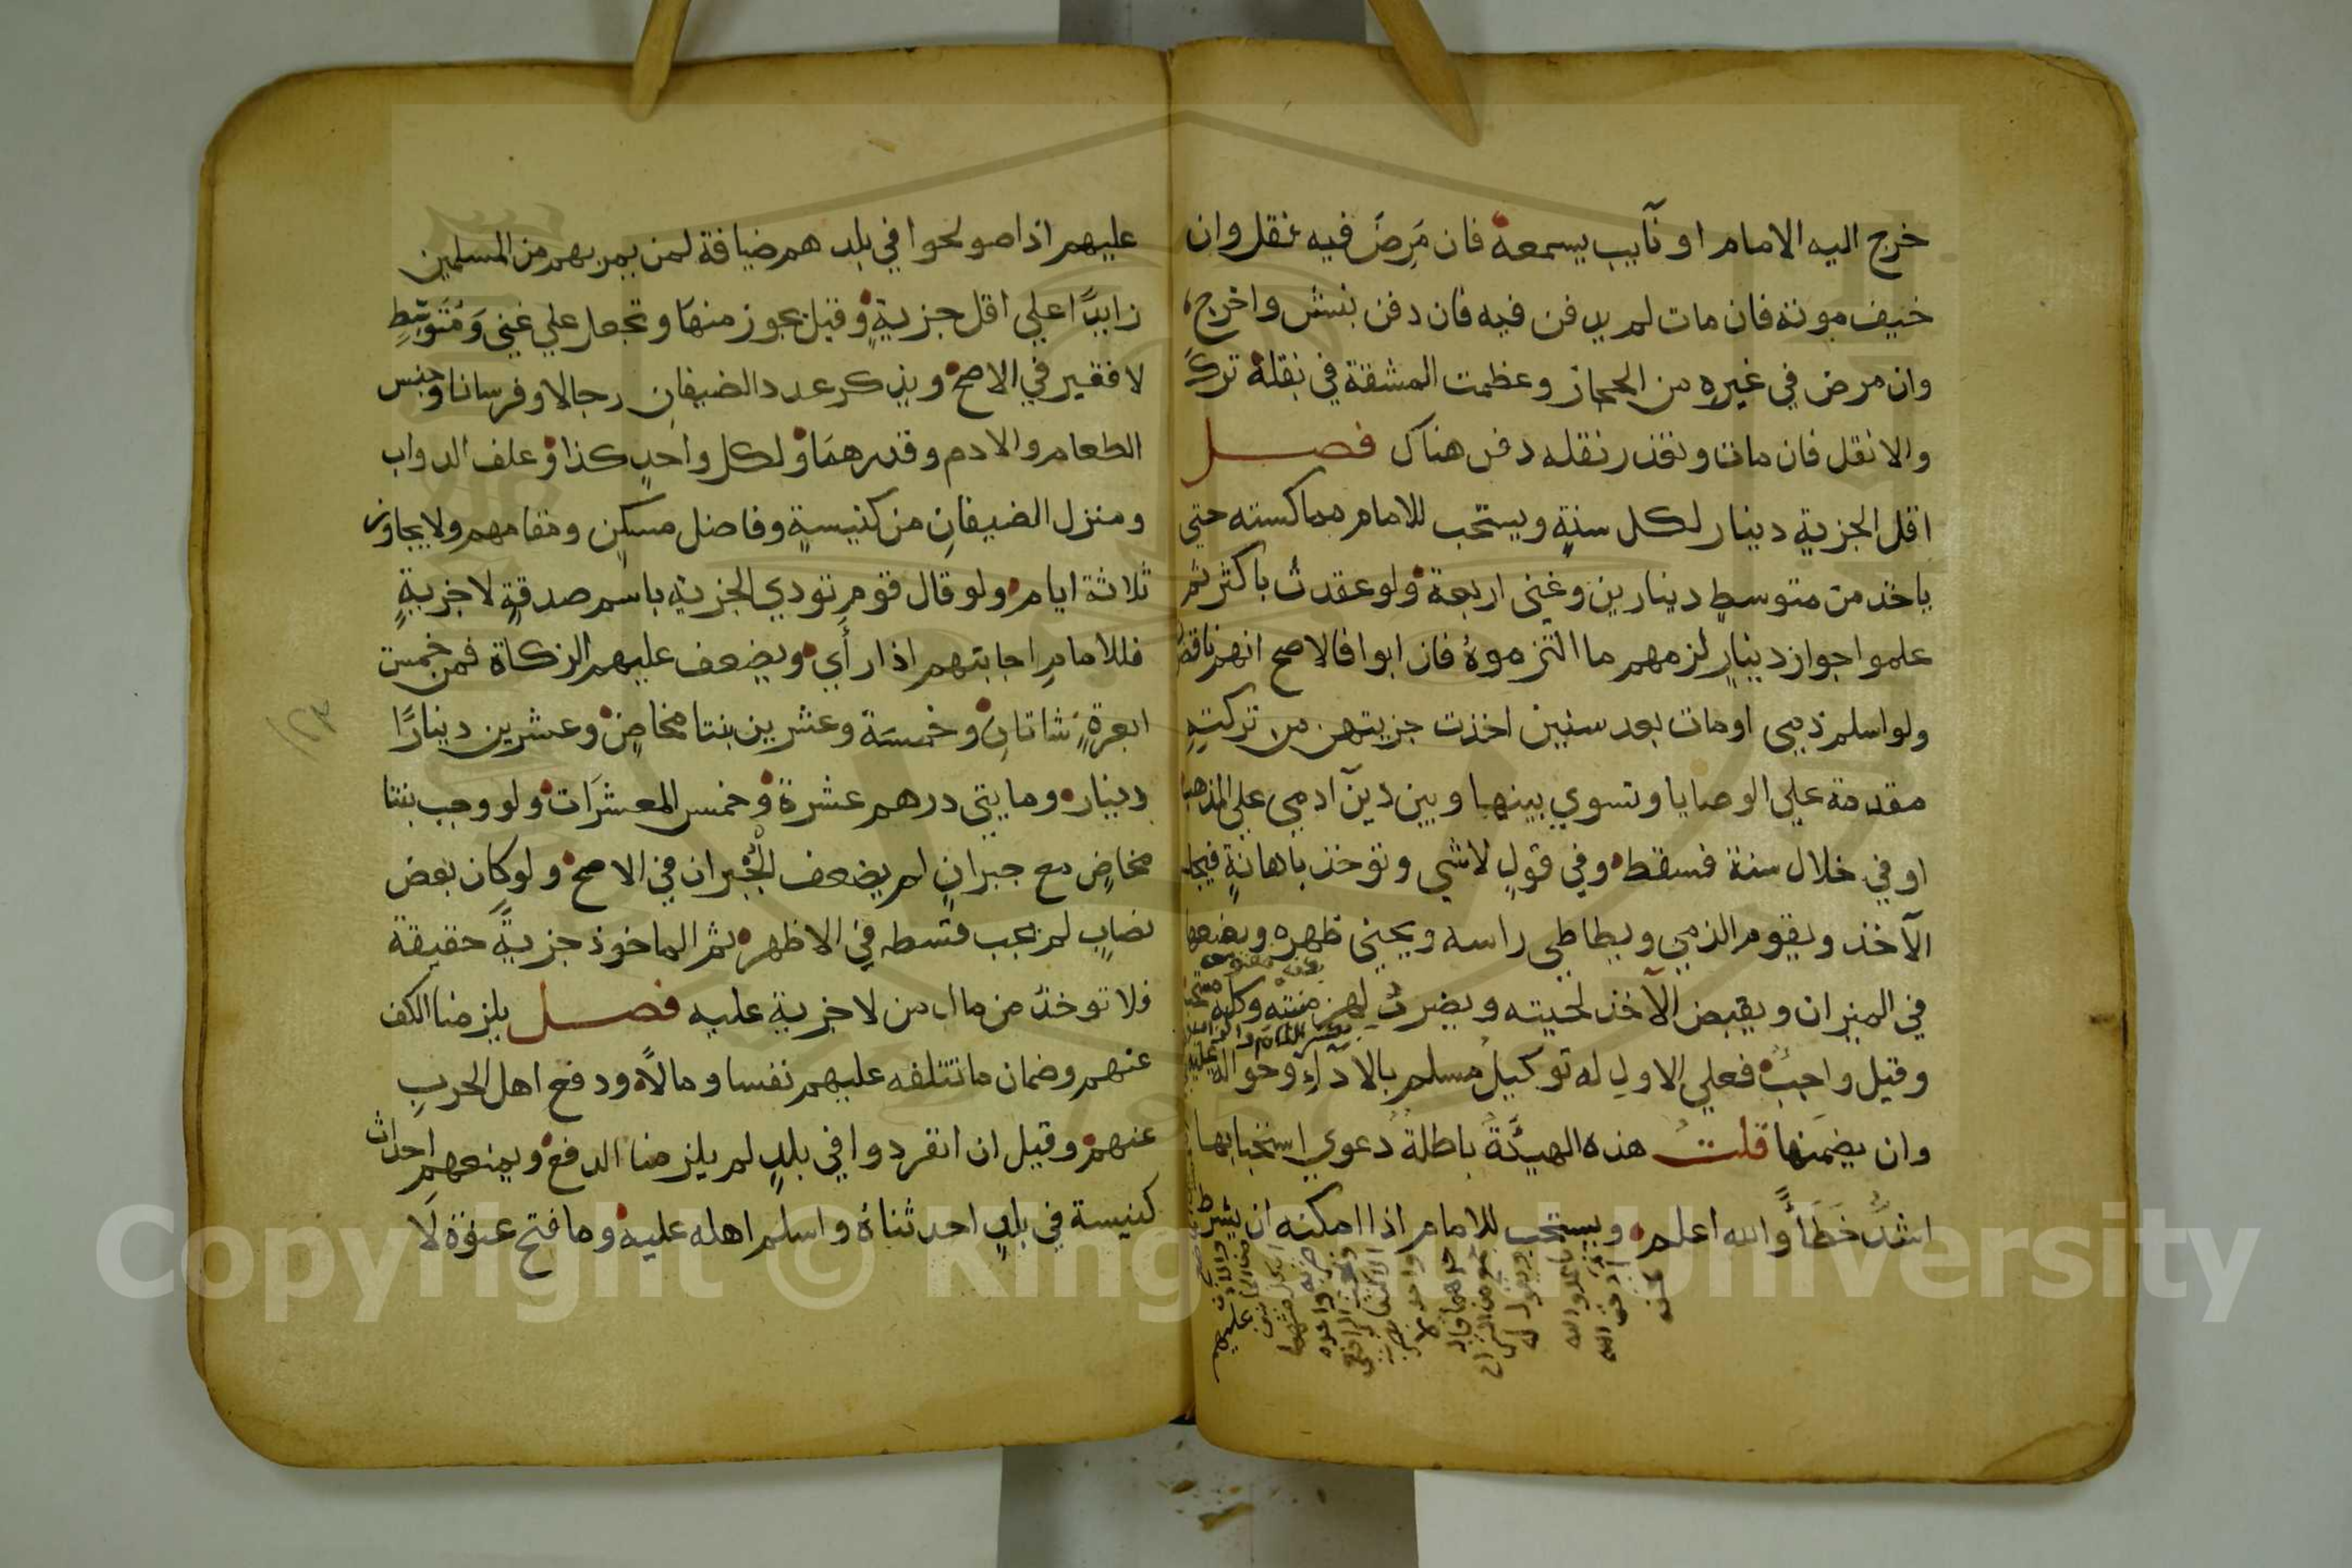 خرج اليه الامام او نآيب يسمعه فان مَرِضَ فيه نقل وان
خيف موته فان مات لم يدفن فيه فان دفن نبش واخرج
وان مرض في غيره من الحجاز وعظمت المشقة في نقله ترك
والا نقل فان مات وتعذر نقله دفن هناك فصل
اقل الجزية دينار لكل سنةٍ ويستحب للامام مماكسته حتي
ياخذ من متوسطٍ دينارين وغني اربعة ولو عقدت باكثر ثم
علموا جواز دينارٍ لزمهم ما التزموهُ فان ابوا فالاصح انهم ناقضون
ولو اسلم ذمي او مات بعد سنين اخذت جزيتهن من تركتهِ
مقدمة علي الوصايا وتسوي بينها وبين دين آدمي علي المذهب
او في خلال سنة فسقط وفي قولٍ لاشي وتوخذ باهانةٍ فيجلس
الآخذ ويقوم الذمي ويطاطي راسه ويحني ظهره ويضعها
في الميزان ويقبض الآخذ لحيته ويضرب لهزمتيه وكله مستحب
وقيل واجبٌ فعلي الاولِ له توكيلُ مسلمٍ بالادآءِ وحوالة عليه
وان يضمنها قلت هذه الهيئةُ باطلةٌ دعوي استحبابها
اشدُّ خَطَأً والله اعلم ويستحب للامام اذا امكنه ان يشرط
عليهم اذا صولحوا في بلدهم ضيافة لمن يمر بهم من المسلمين
زايدًا علي اقل جزيةٍ وقيل يجوز منها وتجعل علي غني وَمُتَوسِّطٍ
لا فقير في الاصح ويذكر عدد الضيفانِ رجالا وفرسانا وجنس
الطعام والادم وقدرهمَا ولكل واحدٍ كذا وعلف الدواب
ومنزل الضيفانِ من كنيسةٍ وفاضل مسكنٍ ومقامهم ولا يجاوز
ثلاثة ايام ولو قال قوم تودي الجزية باسم صدقةٍ لا جزيةٍ
فللامامِ اجابتهم اذا رأَي ويضعف عليهم الزكاة فمن خمسة
ابعرةٍ شاتانِ وخمسَة وعشرين بنتا مخاضٍ وعشرين دينارًا
دينار ومايتي درهم عشرة وخمس المعشرَات ولو وجب بنتا
مخاضٍ مع جبرانٍ لم يضعف الجُبران في الاصح ولو كان بعض
نصابٍ لم يجب قسطه في الاظهر ثم الماخوذ جزيةً حقيقة
فلا توخذ من مال من لا جزية عليه فصل يلزمنا الكف
عنهم وضمان ما نتلفه عليهم نفسا ومالاً ودفع اهل الحربِ
عنهم وقيل ان انفردوا في بلدٍ لم يلزمنا الدفع ويمنعهم احداث
كنيسة في بلدٍ احدثناهُ واسلم اهله عليه وما فتح عنوة لَا
١٢٣
Copyright © King Saud University